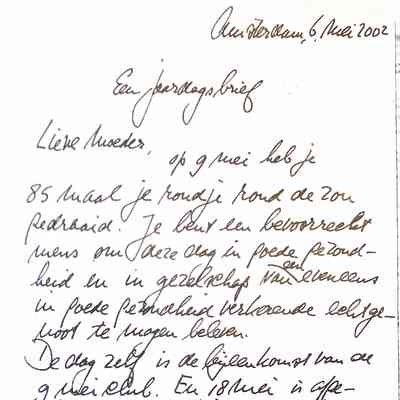 Amsterdam, 6 mei 2002
Een jaardagsbrief
Lieve moeder,
op 9 mei heb je
85 maal je rondje rond de zon
gedraaid. Je bent een bevoorrecht
mens om deze dag in goede gezond-
heid en in gezelschap van een eveneens
in goede gezondheid verkerende echtge-
noot te mogen beleven.
De dag zelf is de bijeenkomst van de
9 mei club. En 18 mei is afge-